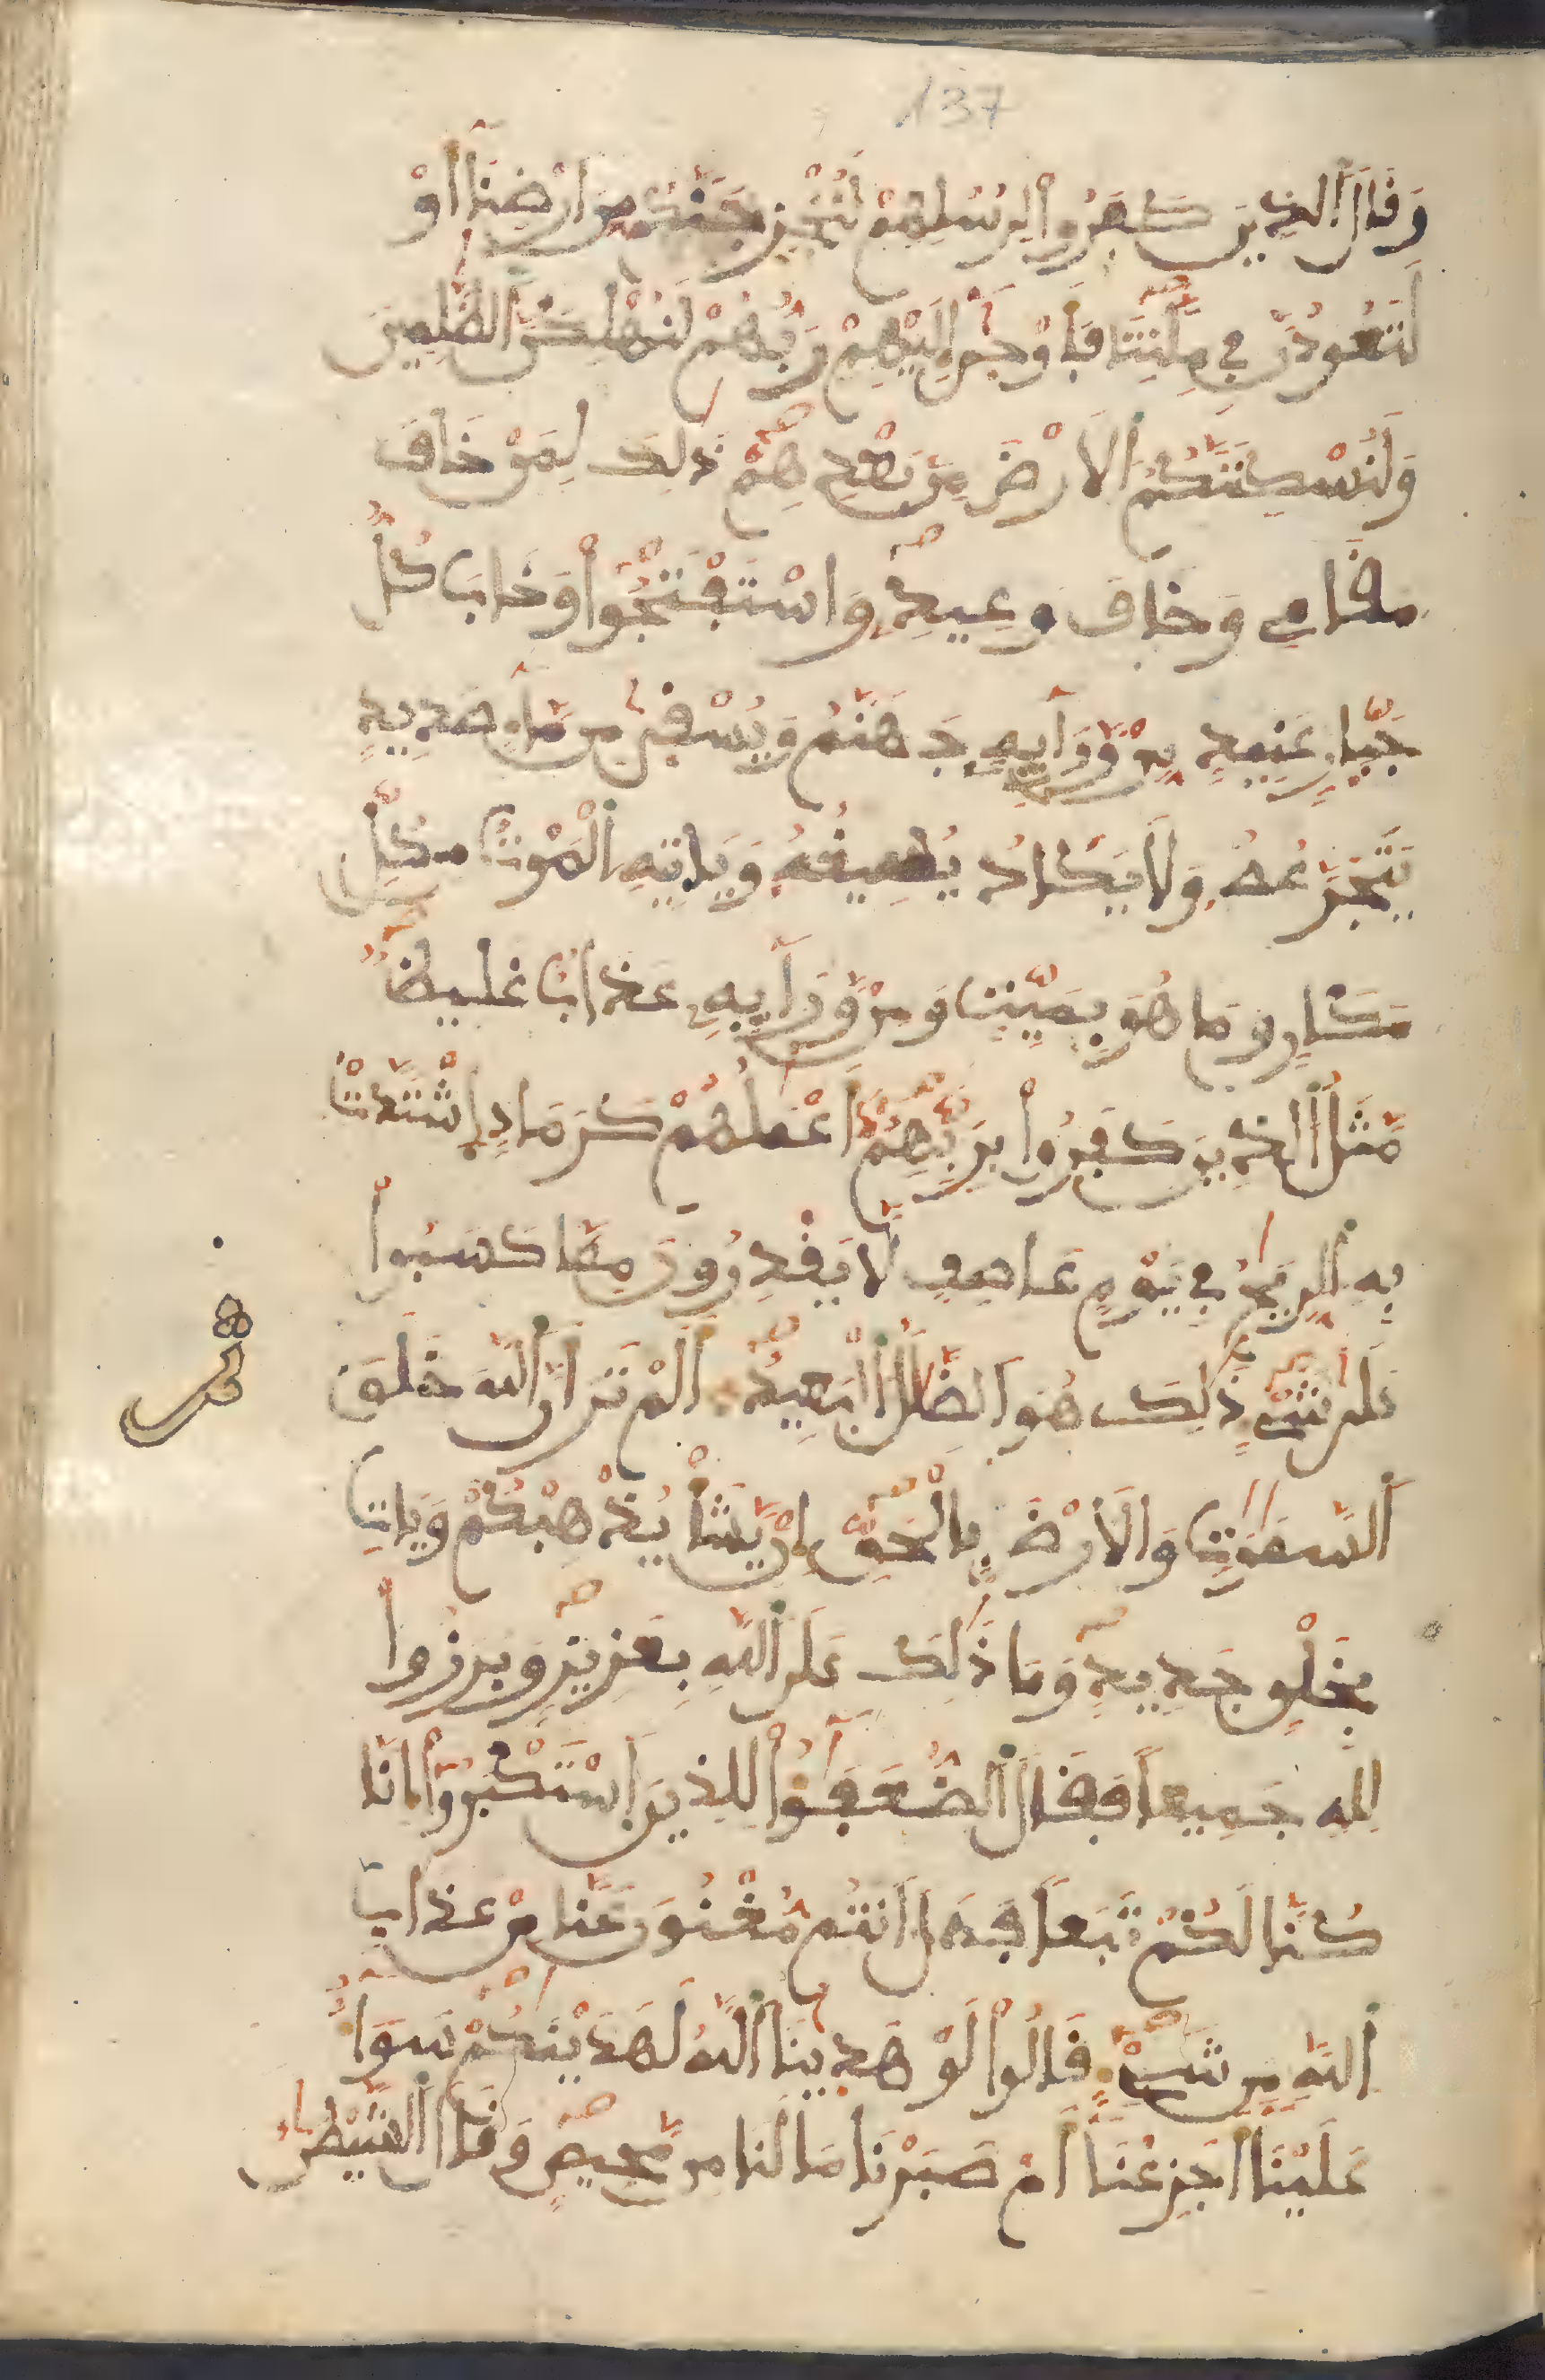 137
وَقَالَ الذِينَ كَفَرُوا لِرُسُلِهِمْ لَنُخْرِجَنَّكُم مِّنَ ارْضِنَا أَوْ
لَتَعُودُنَّ فِي مِلَّتِنَا فَأَوْحَىٰ إِلَيْهِمْ رَبُّهُمْ لَنُهْلِكَنَّ الظَّٰلِمِينَ
وَلَنُسْكِنَنَّكُمُ الَارْضَ مِنۢ بَعْدِهِمْ ذَٰلِكَ لِمَنْ خَافَ
مَقَامِي وَخَافَ وَعِيدِ وَاسْتَفْتَحُوا وَخَابَ كُلُّ
جَبّارٍ عَنِيدٍ مِّنْ وَّرَآئِهِ جَهَنَّمُ وَيُسْقَىٰ مِن مَّآءٍ صَدِيدٍ
يَتَجَرَّعُهُ وَلَا يَكَادُ يُسِيغُهُ وَيَاتِيهِ الْمَوْتُ مِن كُلِّ
مَكَانٍ وَمَا هُوَ بِمَيِّتٍ وَمِنْ وَّرَآئِهِ عَذَابٌ غَلِيظٌ
مَّثَلُ الذِينَ كَفَرُوا بِرَبِّهِمُ أَعْمَٰلُهُمْ كَرَمَادٍ اِشْتَدَّتْ
بِهِ الرِّيَٰحُ فِي يَوْمٍ عَاصِفٍ لَّا يَقْدِرُونَ مِمَّا كَسَبُوا
عَلَىٰ شَيْءٍ ذَٰلِكَ هُوَ الضَّلَٰلُ الْبَعِيدُ أَلَمْ تَرَ أَنَّ اللَّهَ خَلَقَ
السَّمَٰوَٰتِ وَالَارْضَ بِالْحَقِّ إِنْ يَّشَأْ يُذْهِبْكُمْ وَيَاتِ
بِخَلْقٍ جَدِيدٍ وَمَا ذَٰلِكَ عَلَى اللَّهِ بِعَزِيزٍ وَبَرَزُوا
لِلهِ جَمِيعاً فَقَالَ الضُّعَفَٰٓؤُا لِلذِينَ اَسْتَكْبَرُوا إِنَّا
كُنَّا لَكُمْ تَبَعاً فَهَلَ اَنتُم مُّغْنُونَ عَنَّا مِنْ عَذَابِ
اللَّهِ مِن شَيْءٍ قَالُوا لَوْ هَدَىٰنَا اللَّهُ لَهَدَيْنَٰكُمْ سَوَآءٌ
عَلَيْنَا أَجَزِعْنَا أَمْ صَبَرْنَا مَا لَنَا مِن مَّحِيصٍ وَقَالَ الشَّيْطَٰنُ